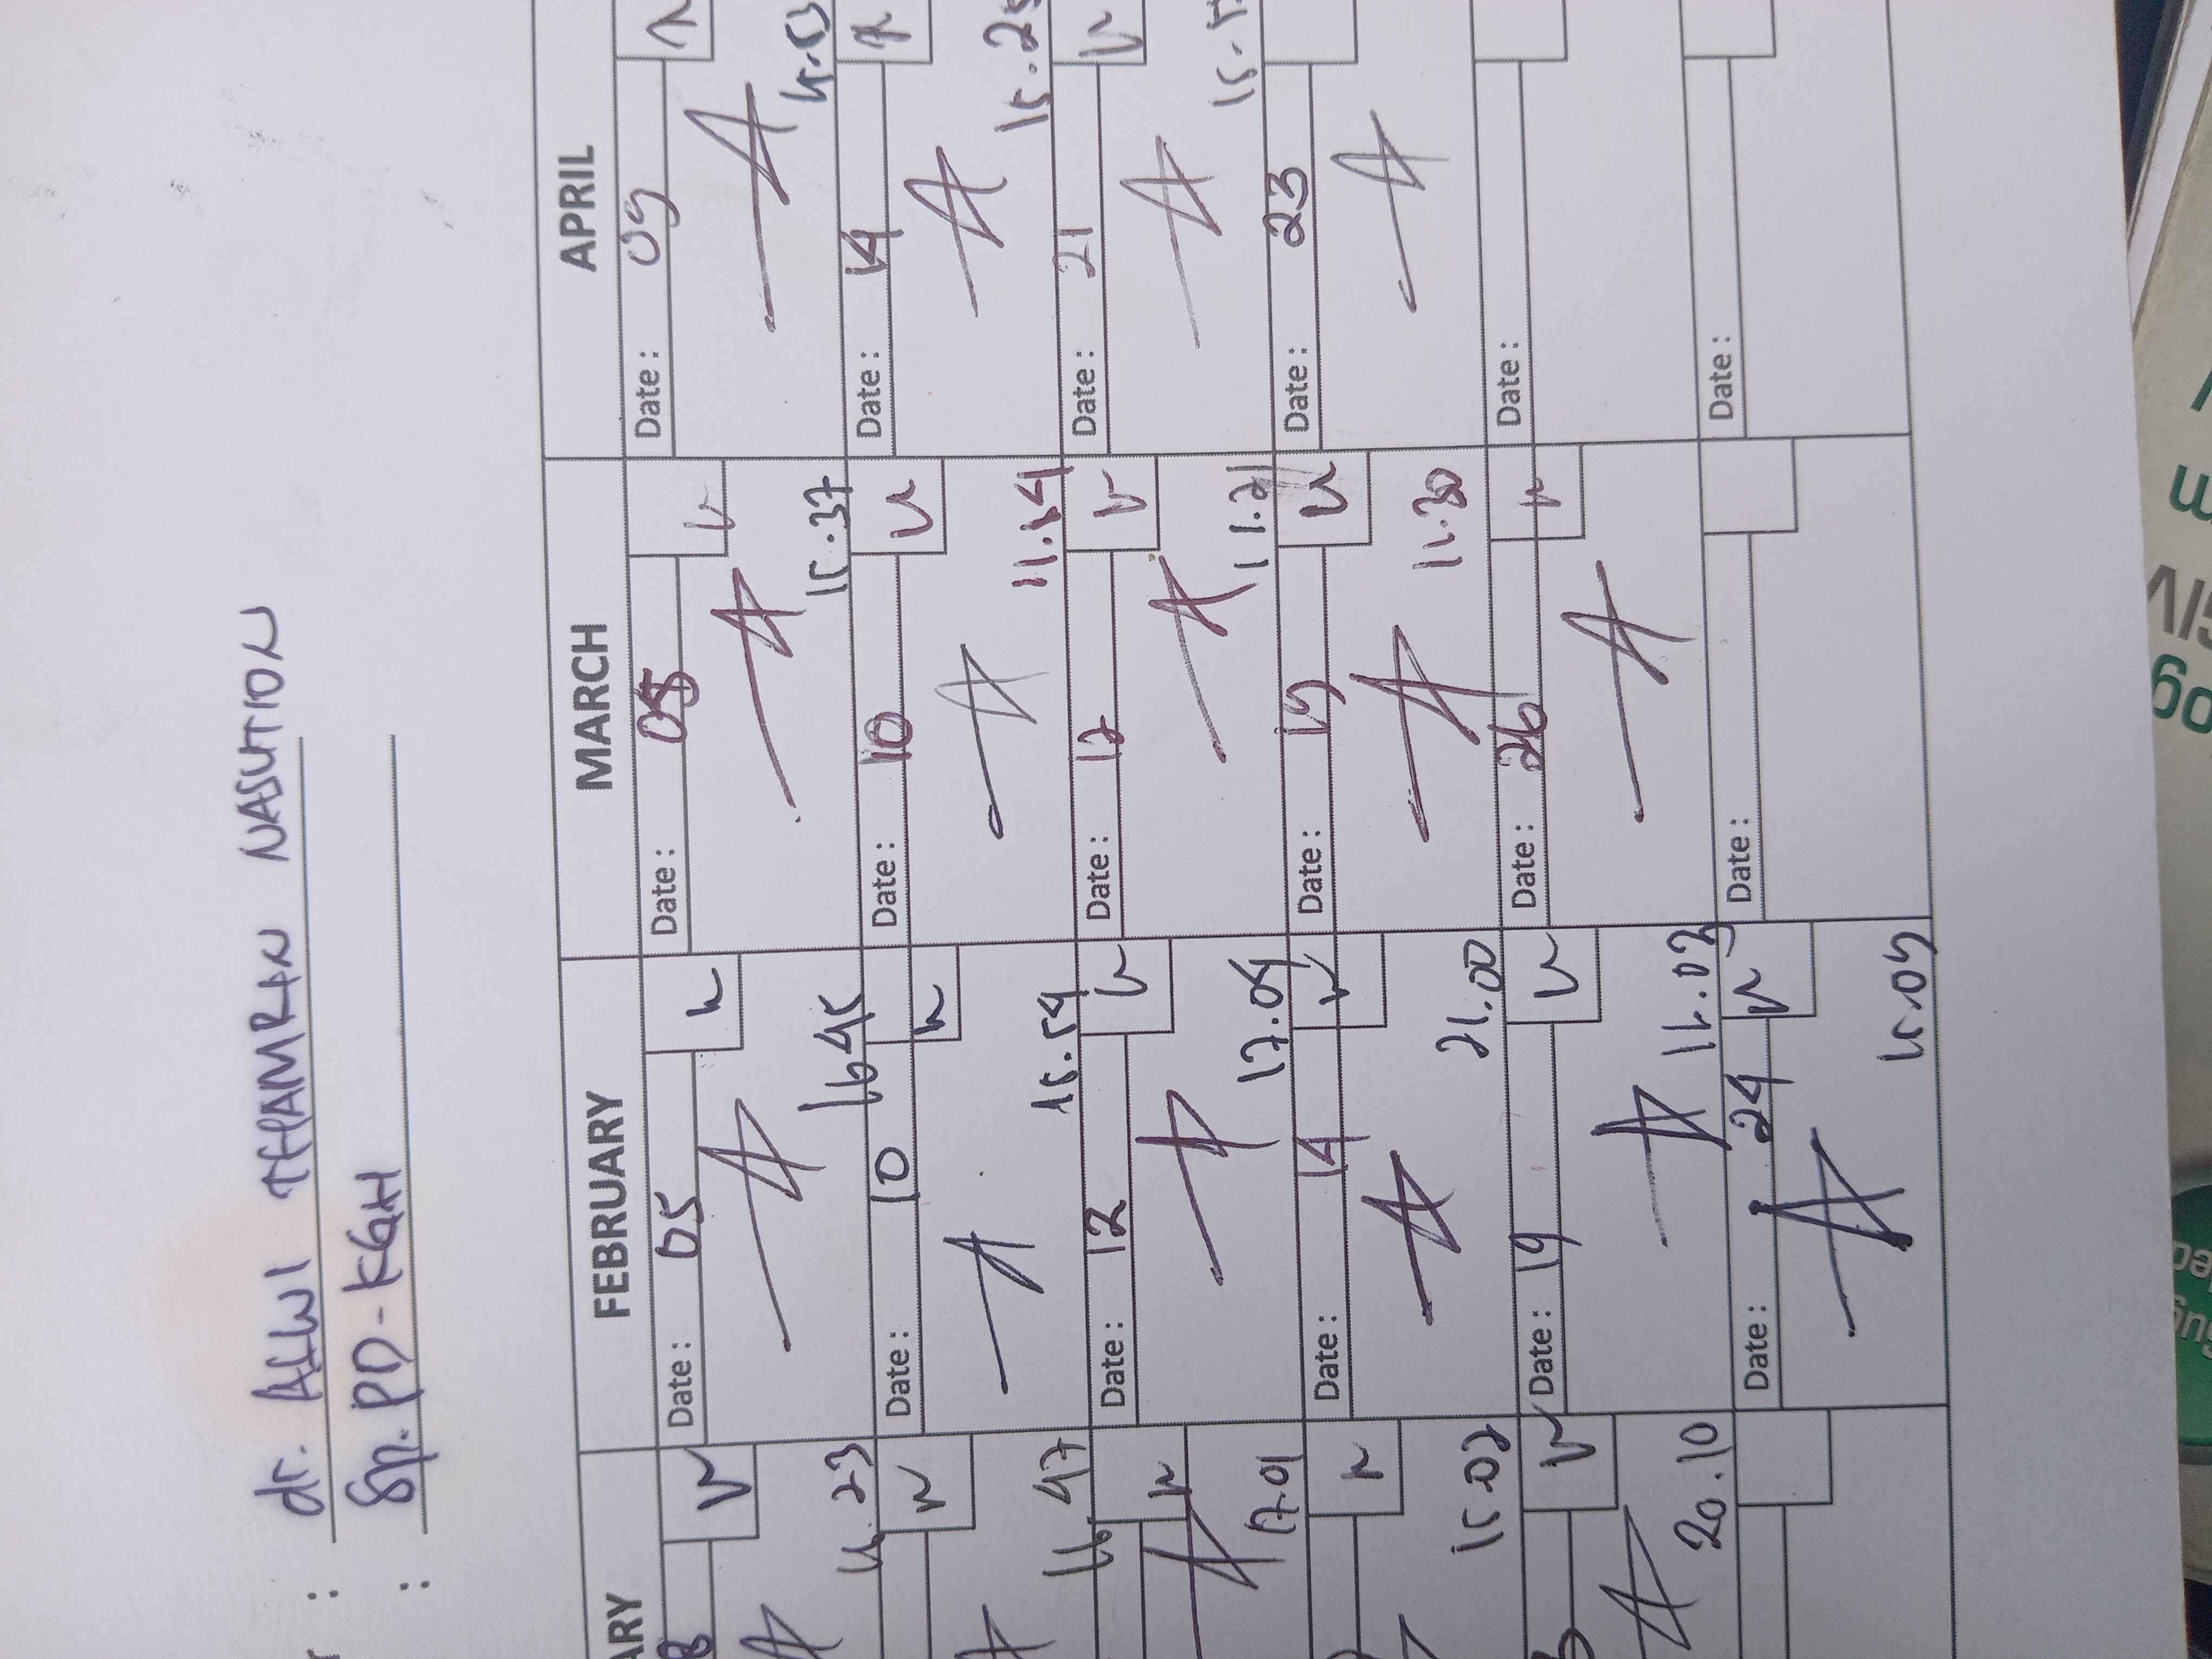 : dr. ALWI THAMRIN NASUTION
: Sp. PD-KGH
ARY FEBRUARY MARCH APRIL
8 Date: 05 Date: 05 Date: 09
16.23 16.45 15.37
Date: 10 Date: 10 Date: 14
16.47 15.54 11.14 15.25
Date: 12 Date: 12 Date: 21
17.01 17.04 11.21
Date: 14 Date: 19 Date: 23
15.02 21.00 11.30
Date: 19 Date: 26 Date:
20.10
Date: 24 Date: Date:
15.09